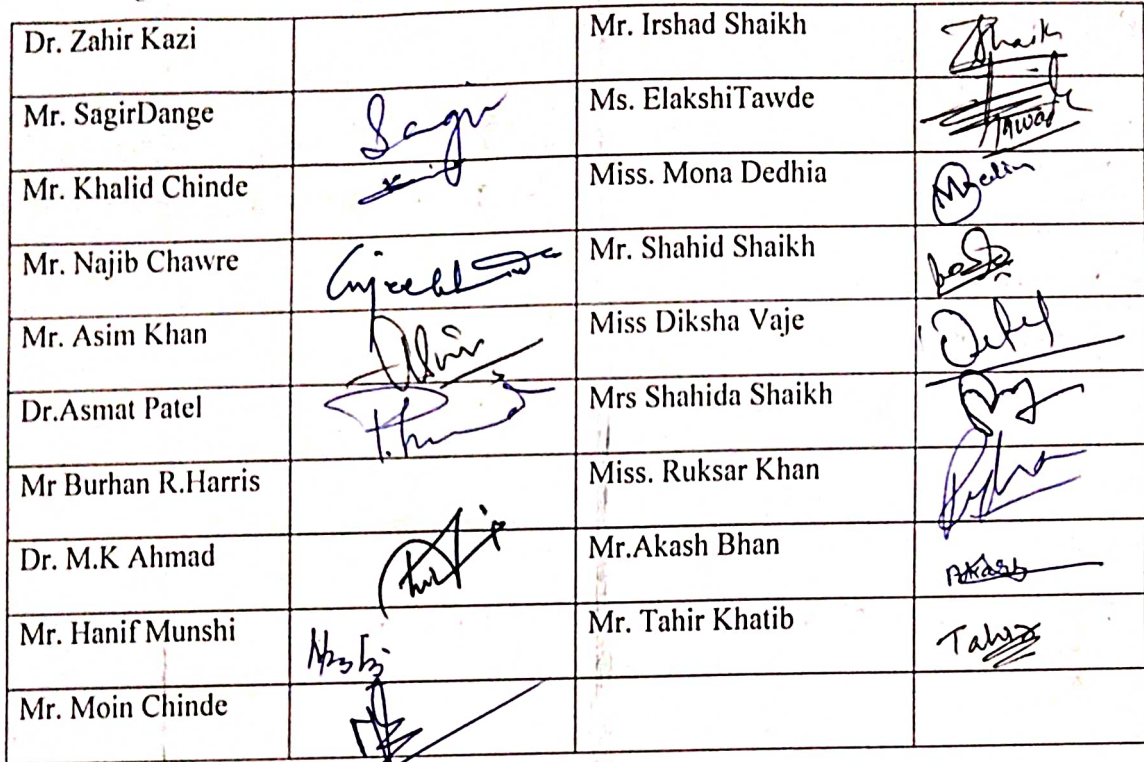 Dr. Zahir Kazi Mr. Irshad Shaikh ZShaikh
Mr. SagirDange Sagir Ms. ElakshiTawde Tawde
Mr. Khalid Chinde Miss. Mona Dedhia
Mr. Najib Chawre Mr. Shahid Shaikh
Mr. Asim Khan Asim Miss Diksha Vaje
Dr.Asmat Patel Mrs Shahida Shaikh
Mr Burhan R.Harris Miss. Ruksar Khan
Dr. M.K Ahmad Mr.Akash Bhan Akash
Mr. Hanif Munshi Mr. Tahir Khatib Tahir
Mr. Moin Chinde